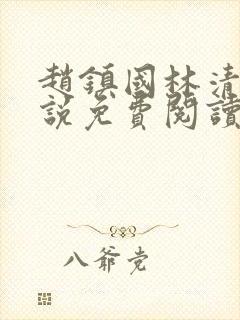 趙鎮國林清
說免費閱讀
八爺党